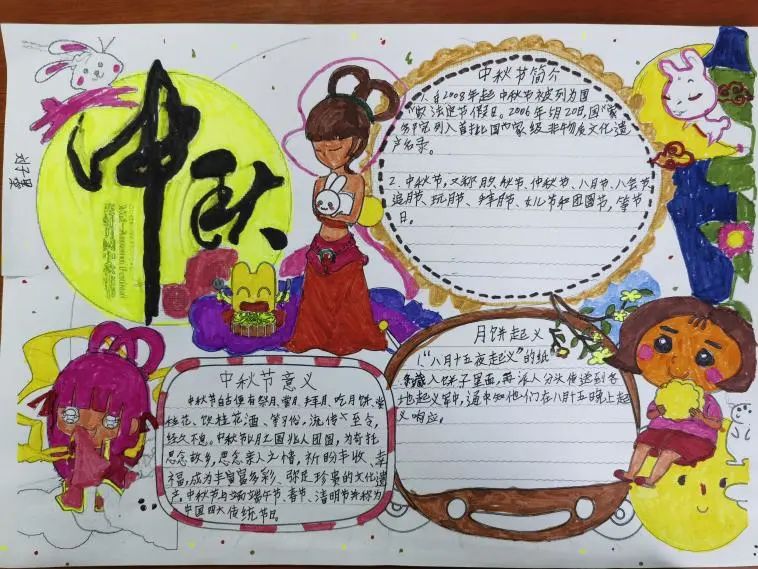 中秋
Mid-Autumn Festival
中秋节简介
1. 自2008年起中秋节被列为国
家法定节假日。2006年5月20日,国务
院列入首批国家级非物质文化遗
产名录。
2. 中秋节,又称月夕、秋节、仲秋节、八月节、八会节
追月节、玩月节、拜月节、女儿节和团圆节,等节
日。
中秋节意义
中秋节自古便有祭月、赏月、拜月、吃月饼、赏
桂花、饮桂花酒、等习俗,流传至今,
经久不息。中秋节以月之圆兆人团圆,为寄托
思念故乡,思念亲人之情,祈盼丰收、幸
福,成为丰富多彩、弥足珍贵的文化遗
产。中秋节与端午节、春节、清明节并称为
中国四大传统节日。
月饼起义
1.“八月十五夜起义”的纸
条藏入饼子里面,再派人分头传送到各
地起义军中,通知他们在八月十五晚上起
义响应。